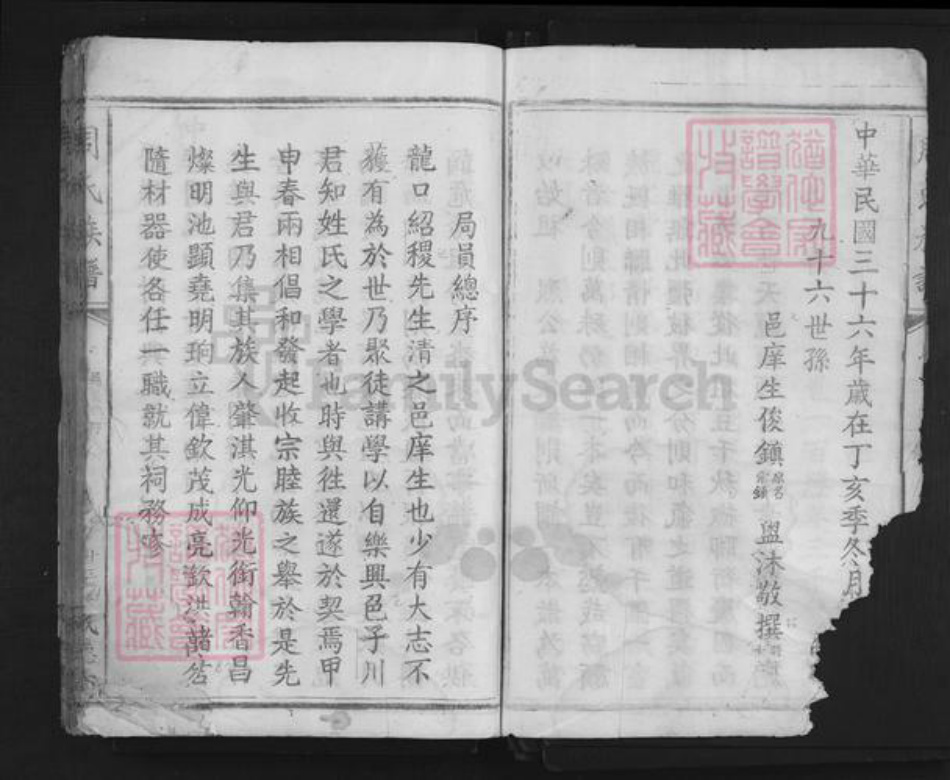 中華民國三十六年歲在丁亥季冬月
九十六世孫
邑庠生俊鎮 原名宗鎮 盥沐敬撰
局員總序
龍口紹稷先生清之邑庠生也少有大志不
獲有為於世乃聚徒講學以自樂興邑子川
君知姓氏之學者也時與往還遂於契焉甲
申春兩相倡和發起收宗睦族之舉於是先
生與君乃集其族人肇淇光仰光銜翰香昌
燦明池顯堯明珦立偉欽茂成亮歡洪藷
隨材器使各任一職就其祠務修
周氏族譜
FamilySearch